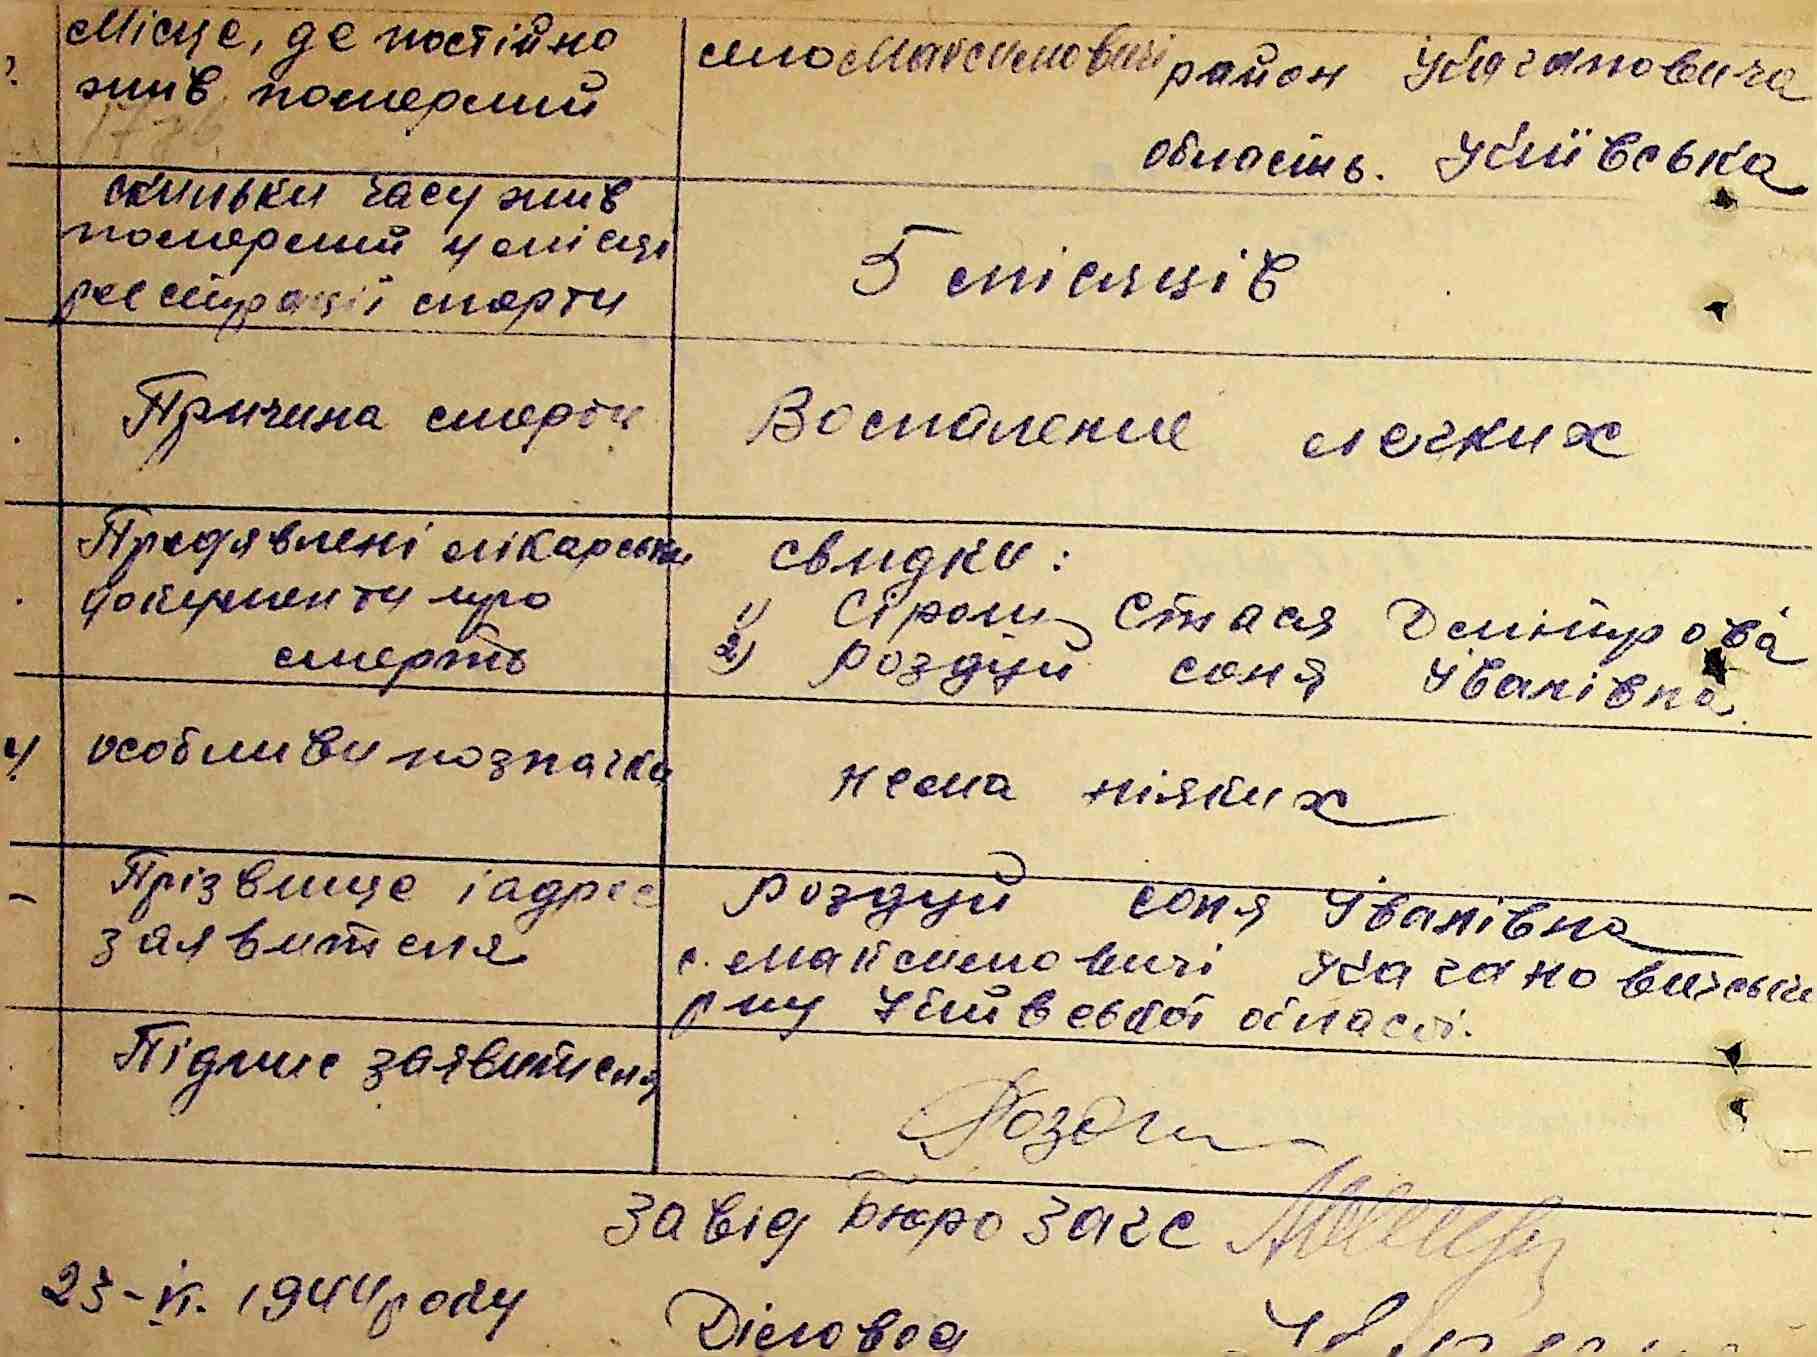 Місце, де постійно
жив померший
село Максимовичі район Кагановича
область. Київська
скильки часу жив
померший у місці
реєстрації смерти
5 місяців
Причина смерти
Воспаление легких
Предявлені лікарськи
документи про
смерть
свидки:
1) Стася
2) Роздуй соня Іванівна
особливи позначки
нема ніяких
Прізвище і адрес
заявителя
Роздуй соня Іванівна
с. Максимовичі Кагановичськ
р-ну Київської області.
Підпис заявителя
завід Бюро Загс
23-VI. 1944 року
Діловод